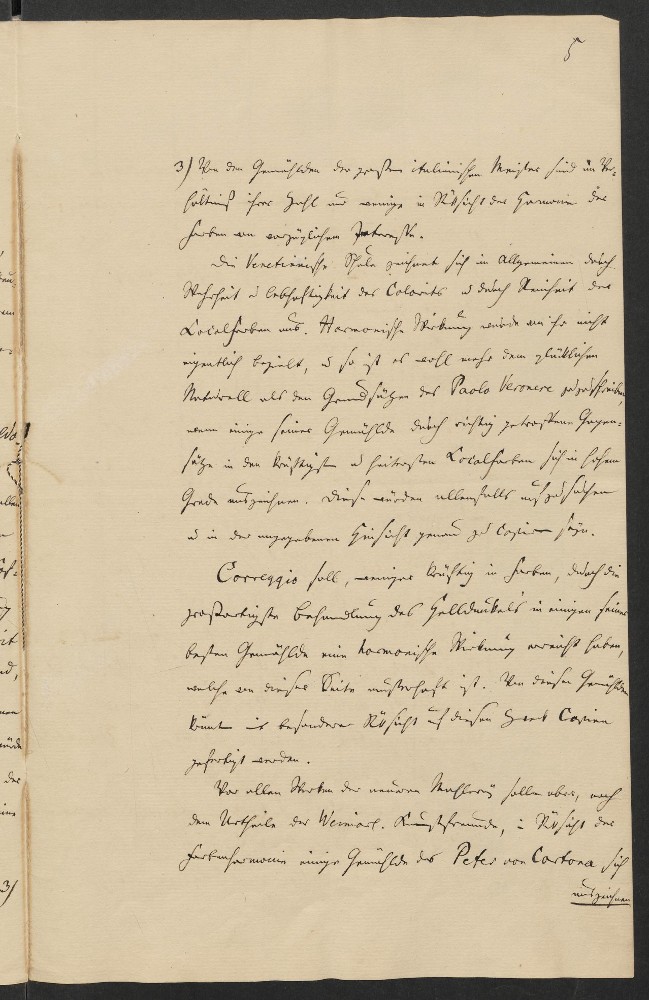 5
3) Von den Gemählden der grossen italienischen Meister sind im Ver-
hältniß ihrer Zahl nur wenige in Rüksicht der Harmonie der
Farben von vorzüglichem Interesse.
Die Venetianische Schule zeichnet sich im Allgemeinen durch
Wahrheit u Lebhaftigkeit des Colorits u durch Reinheit der
Localfarben aus. Harmonische Wirkung wurde von ihr nicht
eigentlich bezielt, u so ist es wohl mehr dem glüklichen
Naturell als den Grundsätzen des Paolo Veronese zuzuschreiben,
wenn einige seiner Gemählde durch richtig getroffene Gegen-
sätze in den kräftigsten u heitersten Localfarben sich in hohem
Grade auszeichnen. Diese würden allenfalls aufzusuchen
u in der angegebenen Hinsicht genau zu copiren seyn.
Correggio soll, weniger kräftig in Farben, durch die
großartigste Behandlung des Helldunkels in einigen seiner
besten Gemählde eine harmonische Wirkung erreicht haben,
welche von dieser Seite musterhaft ist. Von diesen Gemählden
könnten in besonderer Rüksicht auf diesen Zwek Copien
gefertigt werden.
Vor allen Werken der neueren Mahlerey sollen aber, nach
dem Urtheile der Weimar. Kunstfreunde, in Rüksicht der
Farbenharmonie einige Gemählde des Peter von Cortona sich
auszeichnen